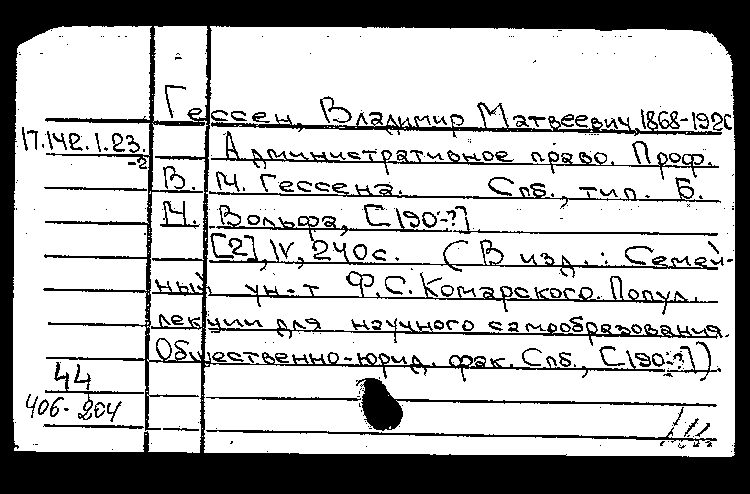 Гессен, Владимир Матвеевич, 1868-1920
17.142.1.23.
-2
Административное право. Проф.
В. М. Гессена. Спб., тип. Б.
М. Вольфа, [190-?]
[2], IV, 240с. (В изд.: Семей-
ный ун-т Ф.С. Комарского. Попул.
лекции для научного самообразования.
Общественно-юрид. фак. Спб., [190-?]).
44
406-204